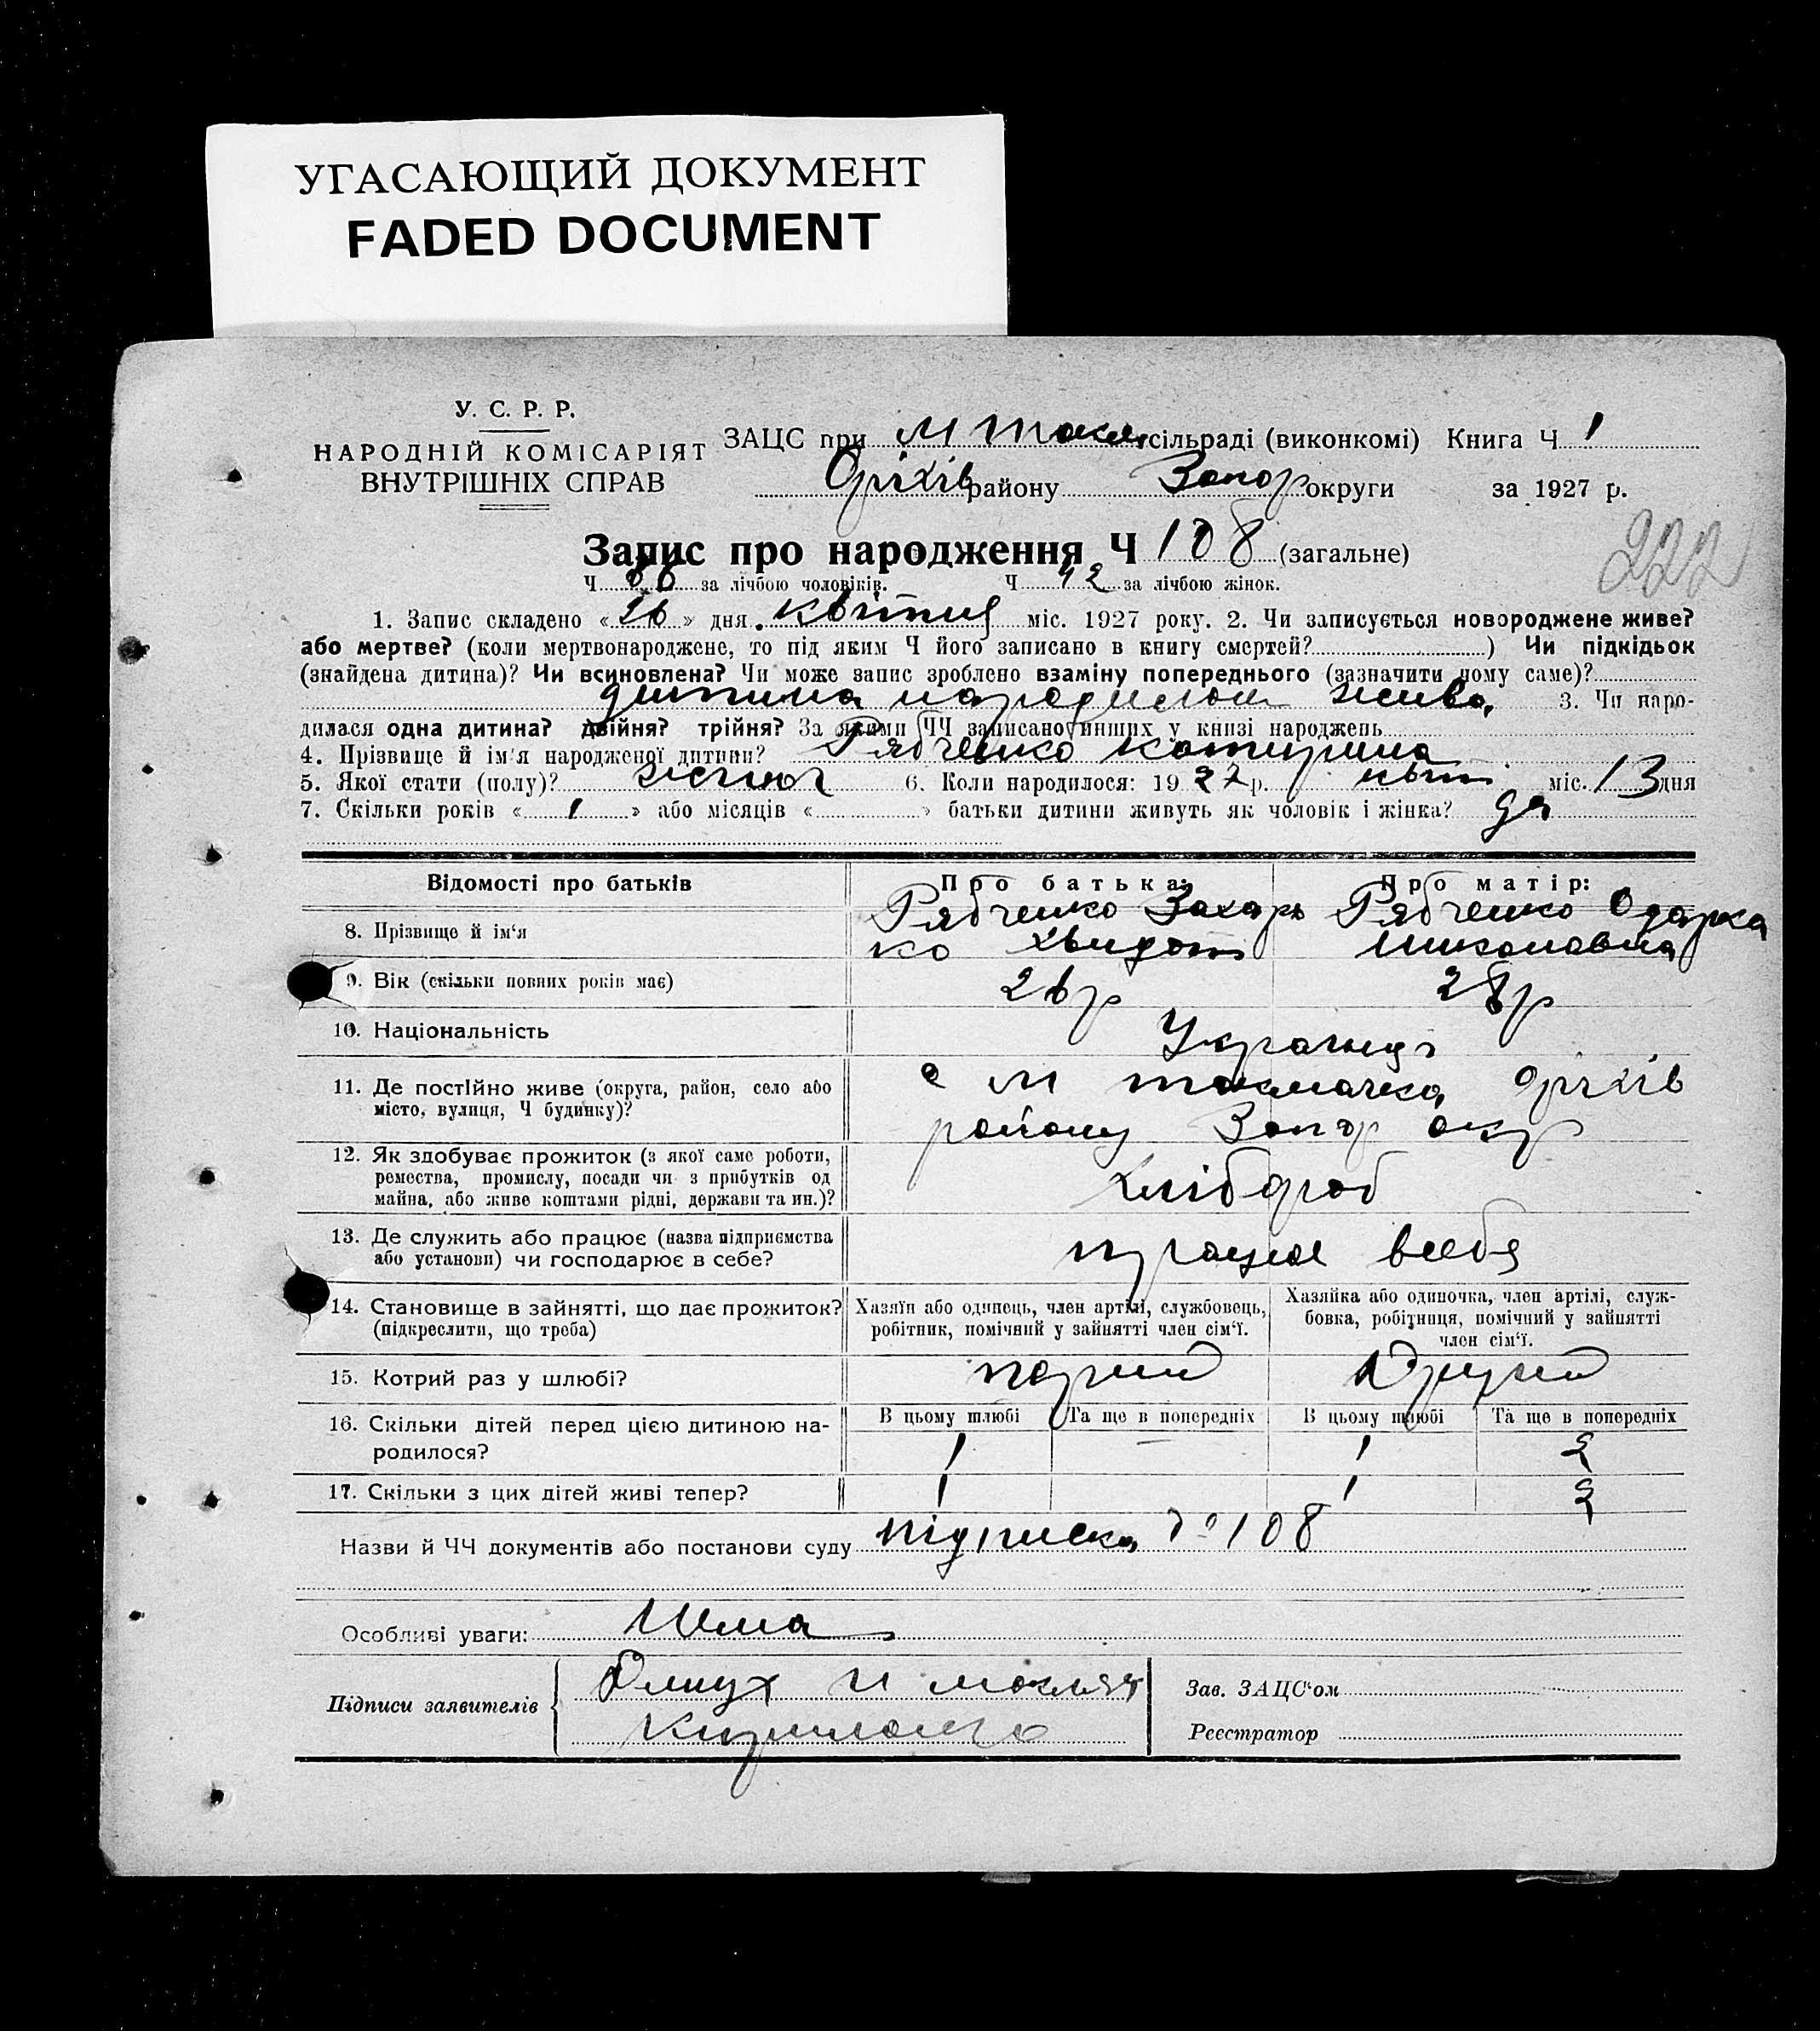 УГАСАЮЩИЙ ДОКУМЕНТ
FADED DOCUMENT
У. С. Р. Р.
НАРОДНІЙ КОМІСАРІЯТ
ВНУТРІШНІХ СПРАВ
ЗАЦС при М Токм. сільраді (виконкомі) Книга Ч 1
Оріхів району Запор округи за 1927 р.
Запис про народження Ч 108 (загальне)
222
Ч 66 за лічбою чоловіків. Ч 42 за лічбою жінок.
1. Запис складено «26» дня квітня міс. 1927 року. 2. Чи записується новороджене живе?
або мертве? (коли мертвонароджене, то під яким Ч його записано в книгу смертей?) Чи підкідьок
(знайдена дитина)? Чи всиновлена? Чи може запис зроблено взаміну попереднього (зазначити чому саме)?
дитина народилась жива 3. Чи наро-
дилася одна дитина? двійня? трійня? За якими ЧЧ записано инших у книзі народжень
4. Прізвище й ім'я народженої дитини? Рябченко Катирина
5. Якої стати (полу)? жіночої 6. Коли народилося: 1927 р. квіт міс. 13 дня
7. Скільки років « 1 » або місяців « » батьки дитини живуть як чоловік і жінка? да
Відомості про батьків Про батька: Про матір:
8. Прізвище й ім'я Рябченко Захарь Рябченко Одарка
ко Хвидот Миколавна
9. Вік (скільки повних років має) 26р 28р
10. Національність Украінці
11. Де постІйно живе (округа, район, село або с М токмачка, Оріхів
місто, вулиця, Ч будинку)? району Запор окр
12. Як здобуває прожиток (з якої саме роботи,
ремества, промислу, посади чи з прибутків од
майна, або живе коштами рідні, держави та ин.)? Хлібороб
13. Де служить або працює (назва підприємства
або установи) чи господарює в себе? працює всебя
14. Становище в зайнятті, що дає прожиток? Хазяїн або одинець, член артілі, службовець, Хазяйка або одиночка, член артілі, служ-
(підкреслити, що треба) робітник, помічний у зайнятті член сім'ї. бовка, робітниця, помічний у зайнятті
член сім'ї.
15. Котрий раз у шлюбі? первий Другий
16. Скільки дітей перед цією дитиною на- В цьому шлюбі Та ще в попередніх В цьому шлюбі Та ще в попередніх
родилося? 1 — 1 2
17. Скільки з цих дітей живі тепер? 1 1 2
Назви й ЧЧ документів або постанови суду підписка № 108
Особливі уваги: Нема
Підписи заявителів
Зав. ЗАЦС'ом
Реєстратор